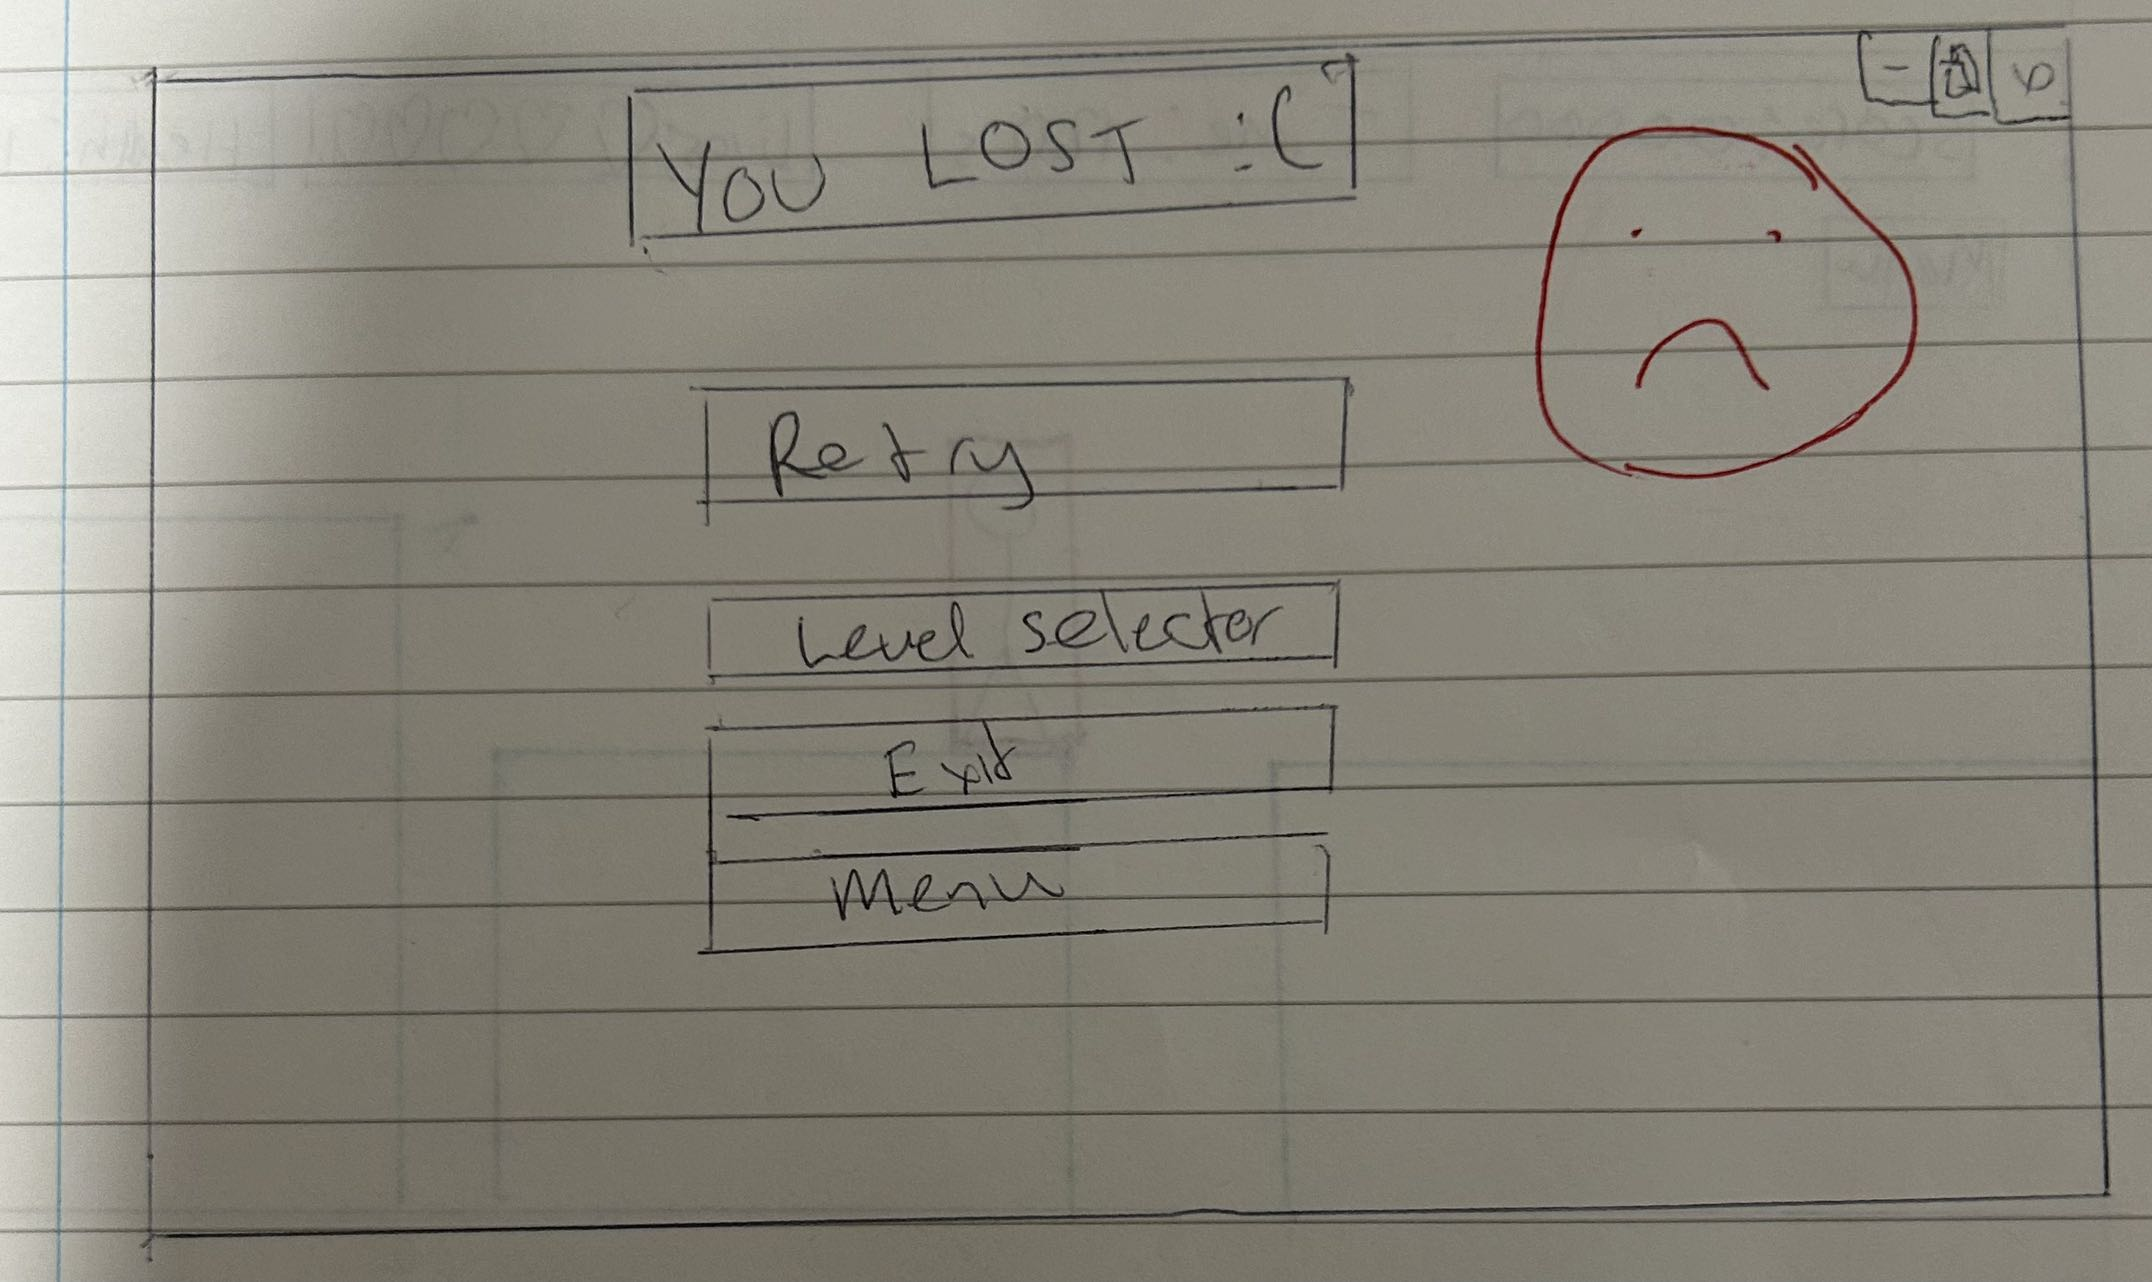 YOU LOST :(
Retry
Level selector
Exit
Menu